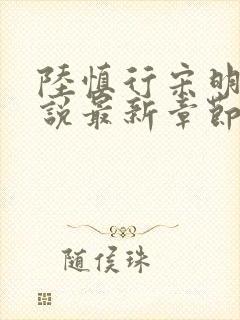 陸慎行宋明
說最新章節
隨侯珠